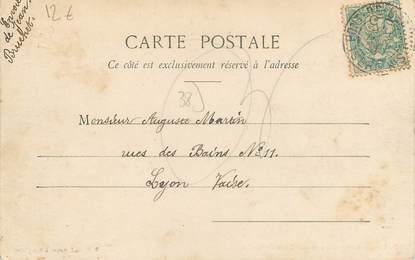 Envoi
de Jean
Bruchet
12 €
CARTE POSTALE
Ce côté est exclusivement réservé à l'adresse
38
Monsieur Auguste Martin
rues des Bains No 11.
Lyon Vaise.